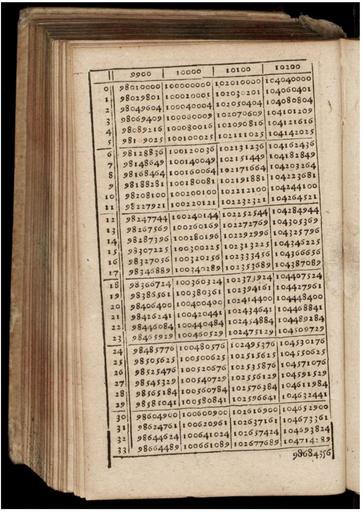 9900 10000 10100 10200
0 98010000 100000000 102010000 104040000
1 98029801 100020001 102030201 104060401
2 98049604 100040004 102050404 104080804
3 98069409 100060009 102070609 104101209
4 98089216 100080016 102090816 104121616
5 98109025 100100025 102111025 104142025
6 98128836 100120036 102131236 104162436
7 98148649 100140049 102151449 104182849
8 98168464 100160064 102171664 104203264
9 98188281 100180081 102191881 104223681
10 98208100 100200100 102212100 104244100
11 98227921 100220121 102232321 104264521
12 98247744 100240144 102252544 104284944
13 98267569 100260169 102272769 104305369
14 98287396 100280196 102292996 104325796
15 98307225 100300225 102313225 104346225
16 98327056 100320256 102333456 104366656
17 98346889 100340289 102353689 104387089
18 98366724 100360324 102373924 104407524
19 98386561 100380361 102394161 104427961
20 98406400 100400400 102414400 104448400
21 98426241 100420441 102434641 104468841
22 98446084 100440484 102454884 104489284
23 98465929 100460529 102475129 104509729
24 98485776 100480576 102495376 104530176
25 98505625 100500625 102515625 104550625
26 98525476 100520676 102535876 104571076
27 98545329 100540729 102556129 104591529
28 98565184 100560784 102576384 104611984
29 98585041 100580841 102596641 104632441
30 98604900 100600900 102616900 104652900
31 98624761 100620961 102637161 104673361
32 98644624 100641024 102657424 104693824
33 98664489 100661089 102677689
98684356